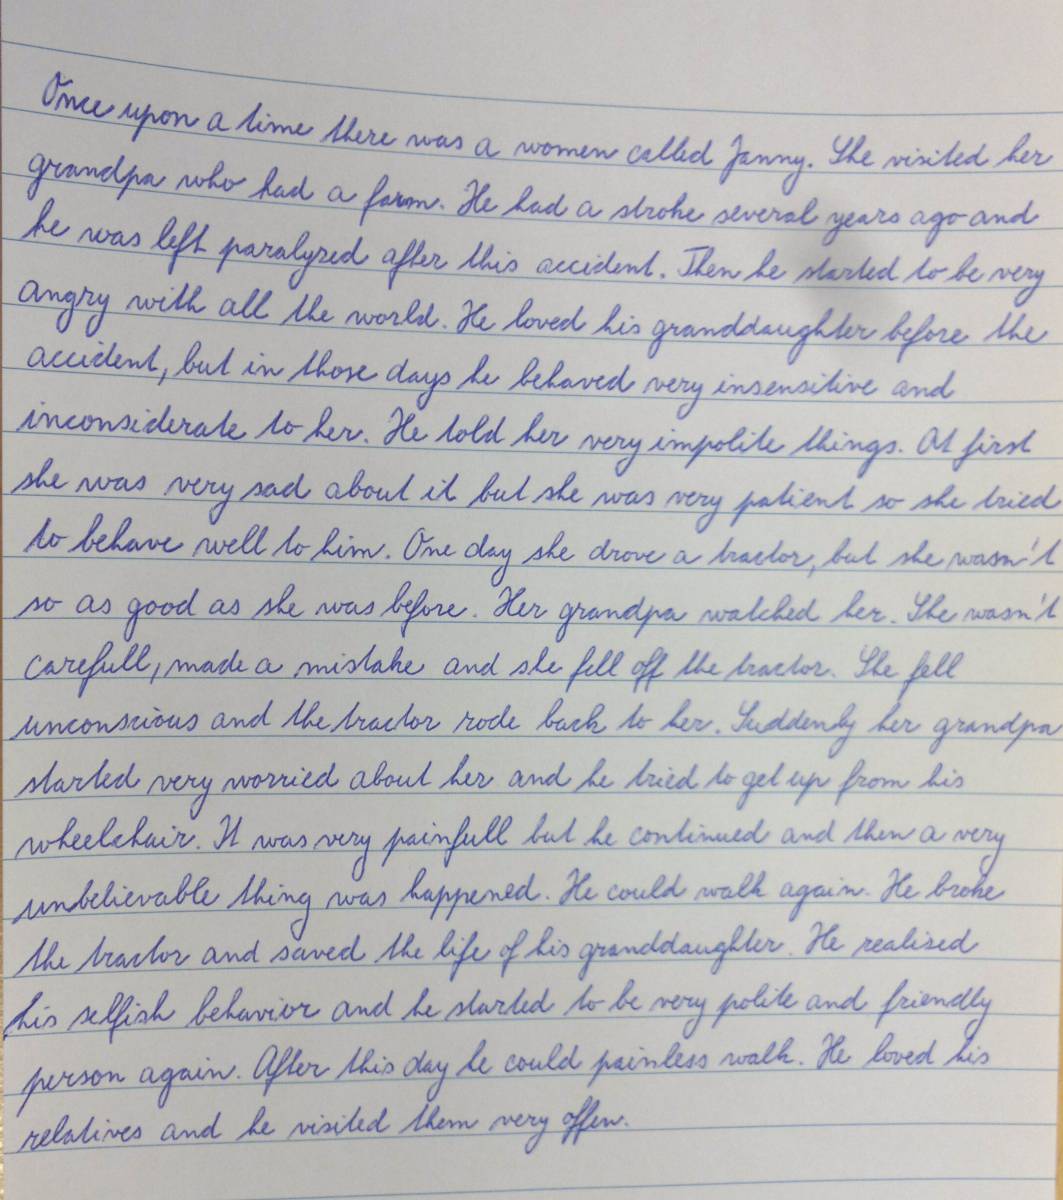 Once upon a time there was a women called Janny. She visited her
grandpa who had a farm. He had a stroke several years ago and
he was left paralyzed after this accident. Then he started to be very
angry with all the world. He loved his granddaughter before the
accident, but in those days he behaved very insensitive and
inconsiderate to her. He told her very impolite things. At first
she was very sad about it but she was very patient so she tried
to behave well to him. One day she drove a tractor, but she wasn't
so as good as she was before. Her grandpa watched her. She wasn't
carefull, made a mistake and she fell off the tractor. She fell
unconscious and the tractor rode back to her. Suddenly her grandpa
started very worried about her and he tried to get up from his
wheelchair. It was very painfull but he continued and then a very
unbelievable thing was happened. He could walk again. He broke
the tractor and saved the life of his granddaughter. He realised
his selfish behavior and he started to be very polite and friendly
person again. After this day he could painless walk. He loved his
relatives and he visited them very offen.